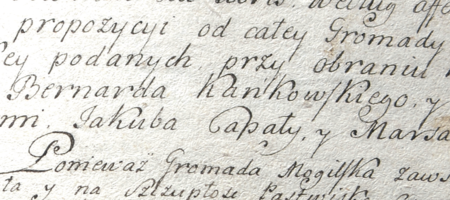 według
propozycyi od całey Gromady
ey podanych, przy obraniu
Bernarda Kankowskiego, y
mn. Jakuba Capały, y Marsa
Ponieważ Gromada Mogilska zaws
ta y na szczupłość Pastwisk